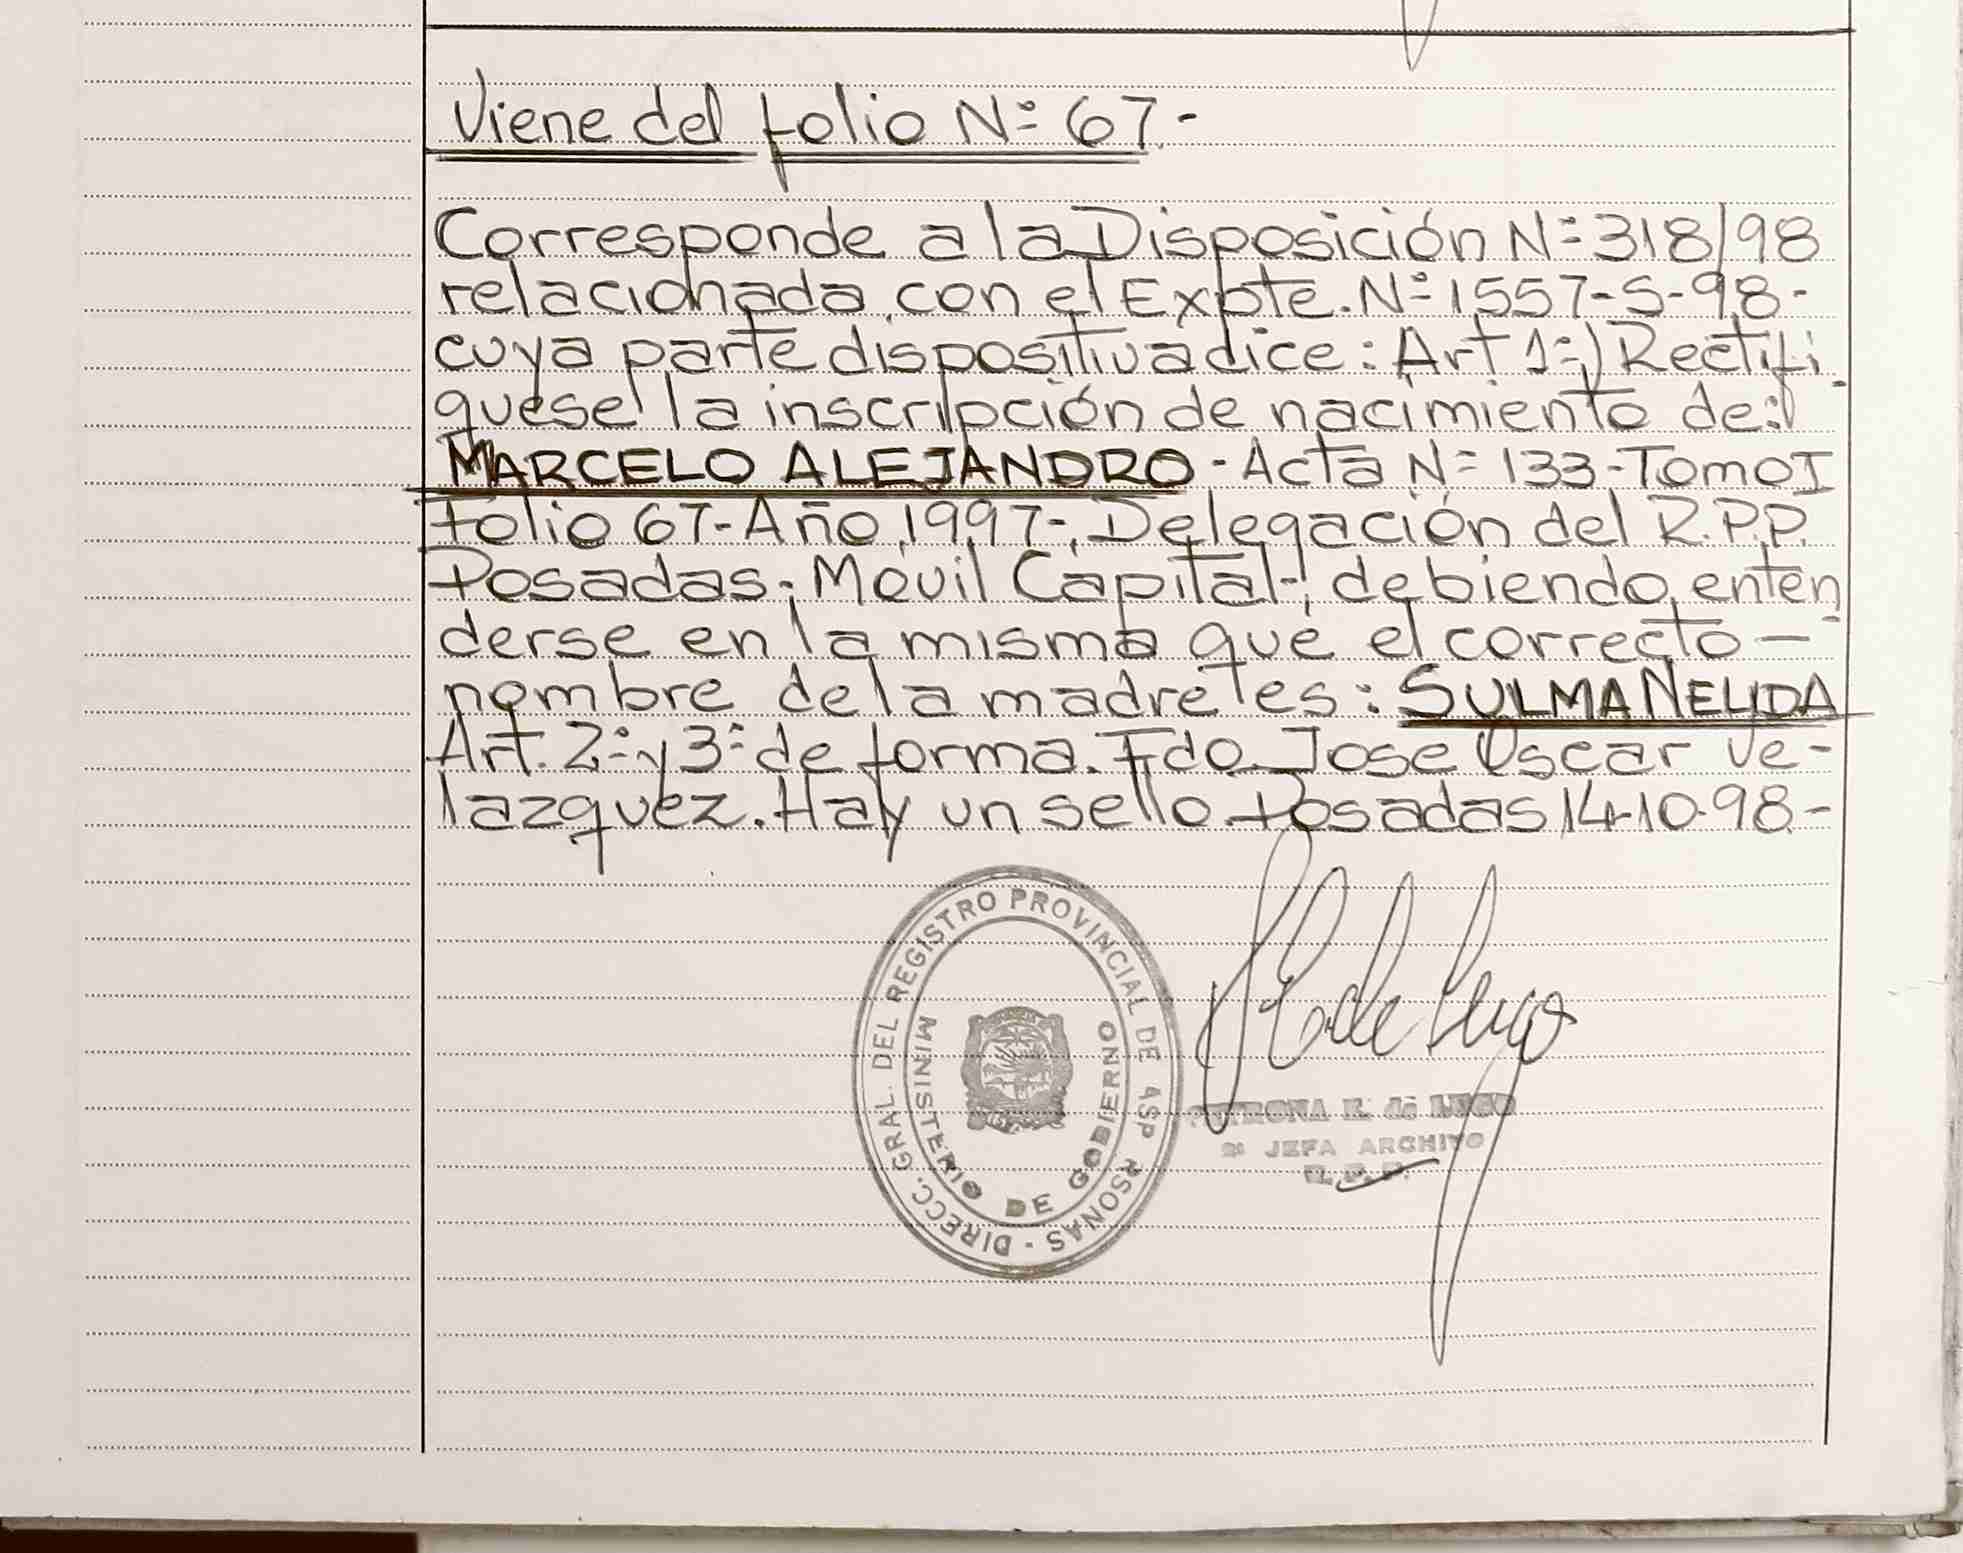 Viene del folio Nº 67.-
Corresponde a la Disposición Nº 318/98
relacionada con el Expte. Nº 1557-S-98-
cuya parte dispositiva dice: Art 1º) Rectifi-
quese la inscripción de nacimiento de:
MARCELO ALEJANDRO - Acta Nº 133-Tomo I
Folio 67-Año 1997-, Delegación del R.P.P.
Posadas; Movil Capital-, debiendo enten-
derse en la misma que el correcto —
nombre de la madre es: SULMA NELIDA
Art. 2º y 3º de forma. Fdo. Jose Oscar Ve-
lazquez. Hay un sello. Posadas 14-10-98-
DIRECC. GRAL. DEL REGISTRO PROVINCIAL DE RSONAS -
MINISTERIO DE GOBIERNO
PETRONA E. de LUGO
JEFA ARCHIVO
R. P. P.